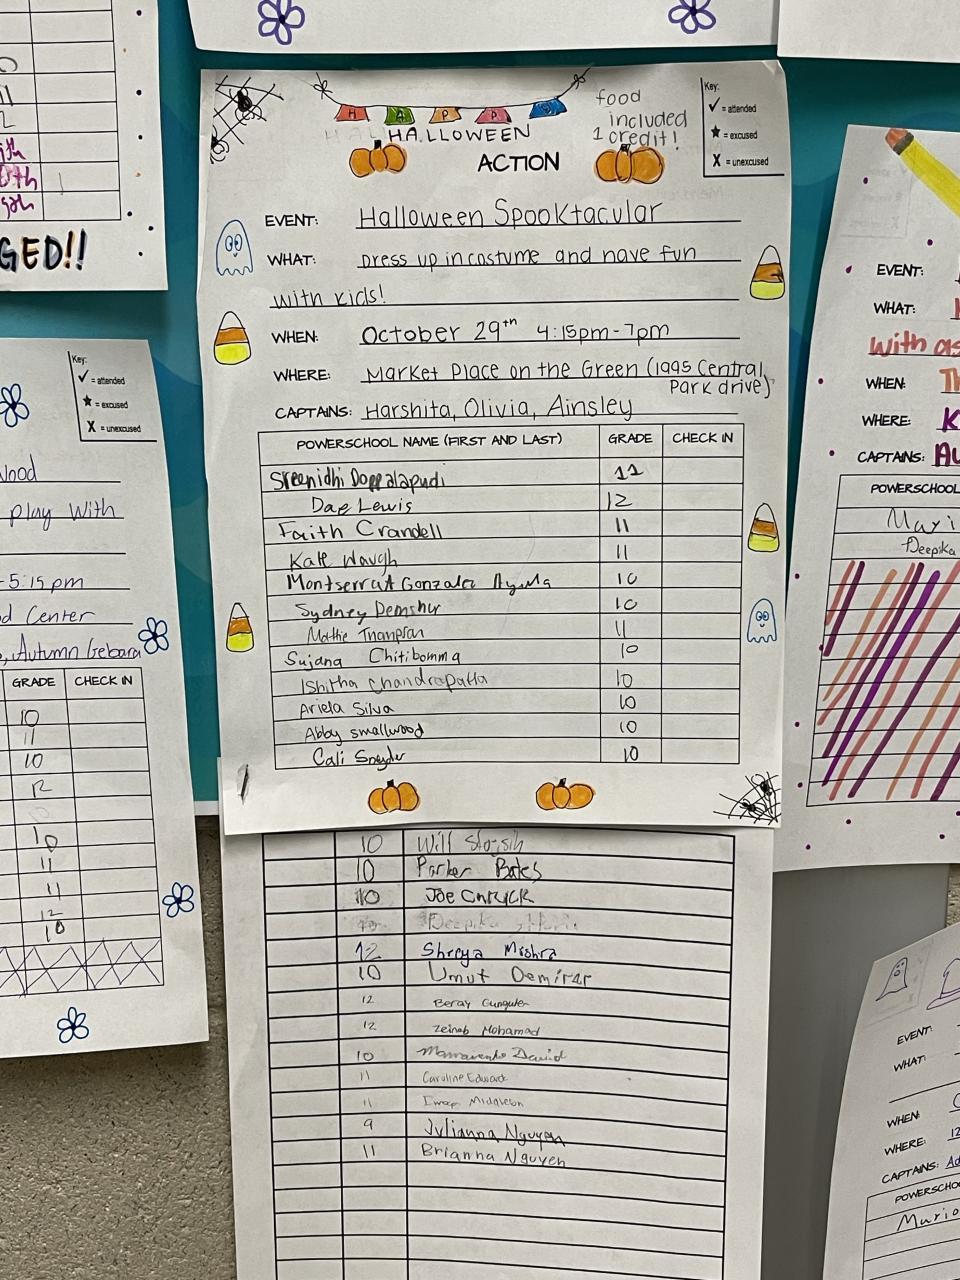 HAPP
HALLOWEEN
ACTION
food
included
1 credit!
Key:
✓ = attended
★ = excused
X = unexcused
EVENT: Halloween Spooktacular
WHAT: Dress up in costume and have fun
with kids!
WHEN: October 29th 4:15pm-7pm
WHERE: Market Place on the Green (1995 Central
Park drive)
CAPTAINS: Harshita, Olivia, Ainsley
POWERSCHOOL NAME (FIRST AND LAST) GRADE CHECK IN
Sreenidhi Doppalapudi 12
Dae Lewis 12
Faith Crandell 11
Kate Waugh 11
Montserrat Gonzalez 10
Sydney 10
11
Sujana Chitibomma 10
Ishitha Chandrapatla 10
Ariela Silva 10
Abby smallwood 10
Cali Snyder 10
10 Will
10 Parker Bates
10 Joe
Deepika
12 Shreya Mishra
10 Umut Demirar
12 Beray
12 Zeinab Mohamad
10 David
11 Caroline Edward
11 Middleton
9 Julianna Nguyen
11 Brianna Nguyen
GED!!
Key:
✓ = attended
★ = excused
X = unexcused
play with
-5:15 pm
Center
, Autumn Gebara
GRADE CHECK IN
10
11
10
12
10
11
11
12
10
EVENT:
WHAT:
with
WHEN: Th
WHERE: K
CAPTAINS: Au
POWERSCHOOL
Mari
Deepika
EVENT:
WHAT:
WHEN:
WHERE: 12
CAPTAINS: Ad
POWERSCHO
Mario